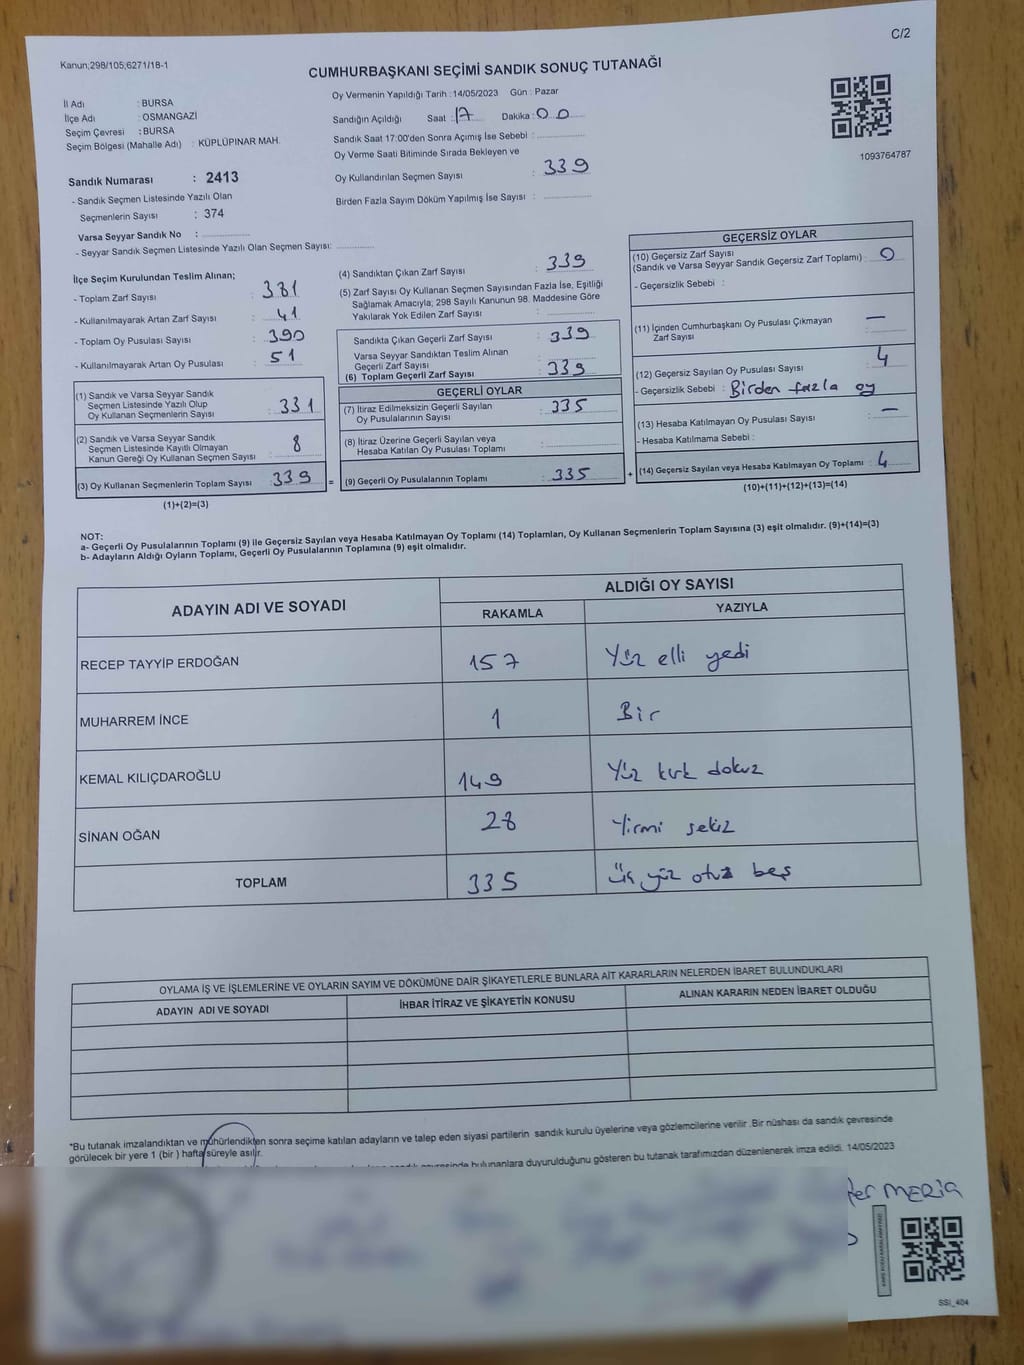 C/2
Kanun;298/105,6271/18-1
CUMHURBAŞKANI SEÇİMİ SANDIK SONUÇ TUTANAĞI
İl Adı : BURSA
İlçe Adı : OSMANGAZİ
Seçim Çevresi : BURSA
Seçim Bölgesi (Mahalle Adı) : KÜPLÜPINAR MAH.
Oy Vermenin Yapıldığı Tarih : 14/05/2023 Gün : Pazar
Sandığın Açıldığı Saat : 17 Dakika : 00
Sandık Saat 17:00'den Sonra Açımış İse Sebebi :
Oy Verme Saati Bitiminde Sırada Bekleyen ve
Oy Kullandırılan Seçmen Sayısı : 339
Birden Fazla Sayım Döküm Yapılmış İse Sayısı :
1093764787
Sandık Numarası : 2413
- Sandık Seçmen Listesinde Yazılı Olan
Seçmenlerin Sayısı : 374
Varsa Seyyar Sandık No :
- Seyyar Sandık Seçmen Listesinde Yazılı Olan Seçmen Sayısı:
İlçe Seçim Kurulundan Teslim Alınan;
- Toplam Zarf Sayısı : 381
- Kullanılmayarak Artan Zarf Sayısı : 41
- Toplam Oy Pusulası Sayısı : 390
- Kullanılmayarak Artan Oy Pusulası : 51
(1) Sandık ve Varsa Seyyar Sandık
Seçmen Listesinde Yazılı Olup
Oy Kullanan Seçmenlerin Sayısı : 331
(2) Sandık ve Varsa Seyyar Sandık
Seçmen Listesinde Kayıtlı Olmayan
Kanun Gereği Oy Kullanan Seçmen Sayısı : 8
(3) Oy Kullanan Seçmenlerin Toplam Sayısı : 339
(1)+(2)=(3)
=
(4) Sandıktan Çıkan Zarf Sayısı : 339
(5) Zarf Sayısı Oy Kullanan Seçmen Sayısından Fazla İse, Eşitliği
Sağlamak Amacıyla; 298 Sayılı Kanunun 98. Maddesine Göre
Yakılarak Yok Edilen Zarf Sayısı :
Sandıkta Çıkan Geçerli Zarf Sayısı : 339
Varsa Seyyar Sandıktan Teslim Alınan
Geçerli Zarf Sayısı :
(6) Toplam Geçerli Zarf Sayısı : 339
GEÇERLİ OYLAR
(7) İtiraz Edilmeksizin Geçerli Sayılan
Oy Pusulalarının Sayısı : 335
(8) İtiraz Üzerine Geçerli Sayılan veya
Hesaba Katılan Oy Pusulası Toplamı :
(9) Geçerli Oy Pusulalarının Toplamı : 335
+
GEÇERSİZ OYLAR
(10) Geçersiz Zarf Sayısı
(Sandık ve Varsa Seyyar Sandık Geçersiz Zarf Toplamı) : 0
- Geçersizlik Sebebi :
(11) İçinden Cumhurbaşkanı Oy Pusulası Çıkmayan
Zarf Sayısı : —
(12) Geçersiz Sayılan Oy Pusulası Sayısı : 4
- Geçersizlik Sebebi : Birden fazla oy
(13) Hesaba Katılmayan Oy Pusulası Sayısı : —
- Hesaba Katılmama Sebebi :
(14) Geçersiz Sayılan veya Hesaba Katılmayan Oy Toplamı : 4
(10)+(11)+(12)+(13)=(14)
NOT:
a- Geçerli Oy Pusulalarının Toplamı (9) ile Geçersiz Sayılan veya Hesaba Katılmayan Oy Toplamı (14) Toplamları, Oy Kullanan Seçmenlerin Toplam Sayısına (3) eşit olmalıdır. (9)+(14)=(3)
b- Adayların Aldığı Oyların Toplamı, Geçerli Oy Pusulalarının Toplamına (9) eşit olmalıdır.
ADAYIN ADI VE SOYADI
ALDIĞI OY SAYISI
RAKAMLA YAZIYLA
RECEP TAYYİP ERDOĞAN 157 Yüz elli yedi
MUHARREM İNCE 1 Bir
KEMAL KILIÇDAROĞLU 149 Yüz kırk dokuz
SİNAN OĞAN 28 Yirmi sekiz
TOPLAM 335 Üç yüz otuz beş
OYLAMA İŞ VE İŞLEMLERİNE VE OYLARIN SAYIM VE DÖKÜMÜNE DAİR ŞİKAYETLERLE BUNLARA AİT KARARLARIN NELERDEN İBARET BULUNDUKLARI
ADAYIN ADI VE SOYADI İHBAR İTİRAZ VE ŞİKAYETİN KONUSU ALINAN KARARIN NEDEN İBARET OLDUĞU
*Bu tutanak imzalandıktan ve mühürlendikten sonra seçime katılan adayların ve talep eden siyasi partilerin sandık kurulu üyelerine veya gözlemcilerine verilir .Bir nüshası da sandık çevresinde
görülecek bir yere 1 (bir ) hafta süreyle asılır.
sandık çevresinde bulunanlara duyurulduğunu gösteren bu tutanak tarafımızdan düzenlenerek imza edildi. 14/05/2023
MERİÇ
SSI_404